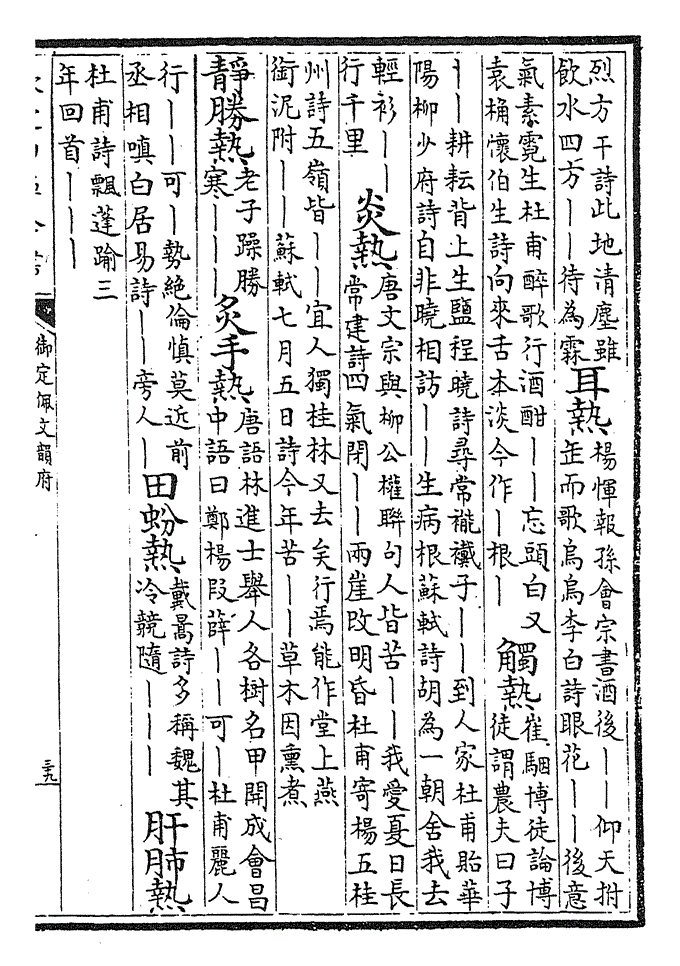 烈方干詩此地清塵雖
飲水四方丨丨待為霖
耳熱
楊惲報孫會宗書酒後丨丨仰天拊
缶而歌烏烏李白詩眼花丨丨後意
氣素霓生杜甫醉歌行酒酣丨丨忘頭白又
袁桷懷伯生詩向來舌本淡今作丨根丨
觸熱
崔駰博徒論博
徒謂農夫曰子
丨丨耕耘背上生鹽程曉詩尋常褦襶子丨丨到人家杜甫貽華
陽柳少府詩自非曉相訪丨丨生病根蘇軾詩胡為一朝舍我去
輕衫丨丨
行千里
炎熱
唐文宗與柳公權聯句人皆苦丨丨我愛夏日長
常建詩四氣閉丨丨兩崖改明昏杜甫寄楊五桂
州詩五嶺皆丨丨宜人獨桂林又去矣行焉能作堂上燕
銜泥附丨丨蘇軾七月五日詩今年苦丨丨草木因熏煮
靜勝熱
老子躁勝
寒丨丨丨
炙手熱
唐語林進士舉人各樹名甲開成會昌
中語曰鄭楊段薛丨丨可丨杜甫麗人
行丨丨可丨勢絶倫慎莫近前
丞相嗔白居易詩丨丨旁人丨
田蚡熱
戴暠詩多稱魏其
冷競隨丨丨丨
肝肺熱
杜甫詩飄蓬踰三
年回首丨丨丨
御定佩文韻府
三十九